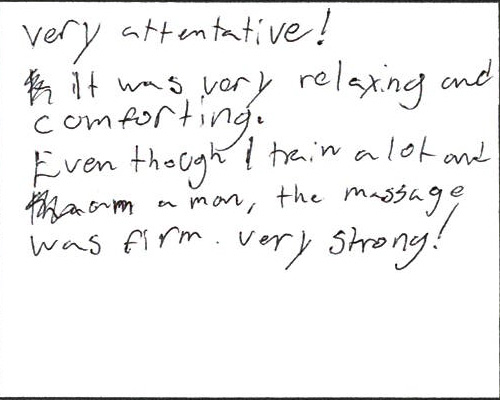 very attentative!
It was very relaxing and
comforting.
Even though I train a lot and
am a man, the massage
was firm. very strong!